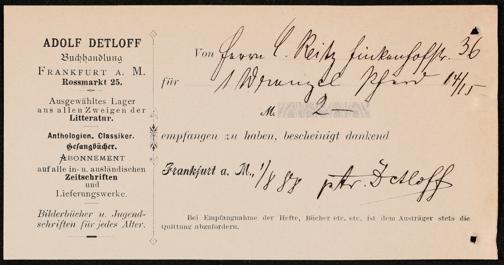 ADOLF DETLOFF
Buchhandlung
FRANKFURT A. M.
Rossmarkt 25.
Ausgewähltes Lager
aus allen Zweigen der
Litteratur.
Anthologien, Classiker.
Gesangbücher.
ABONNEMENT
auf alle in- u. ausländischen
Zeitschriften
und
Lieferungswerke.
Bilderbücher u. Jugend-
schriften für jedes Alter.
Von Herrn C. Reitz Finkenhofstr. 36
für 1 Wrangel Pferd 14/15
M. 2 —
empfangen zu haben, bescheinigt dankend
Frankfurt a. M., 1/8 Detloff
Bei Empfangnahme der Hefte, Bücher etc. etc. ist dem Austräger stets die
Quittung abzufordern.